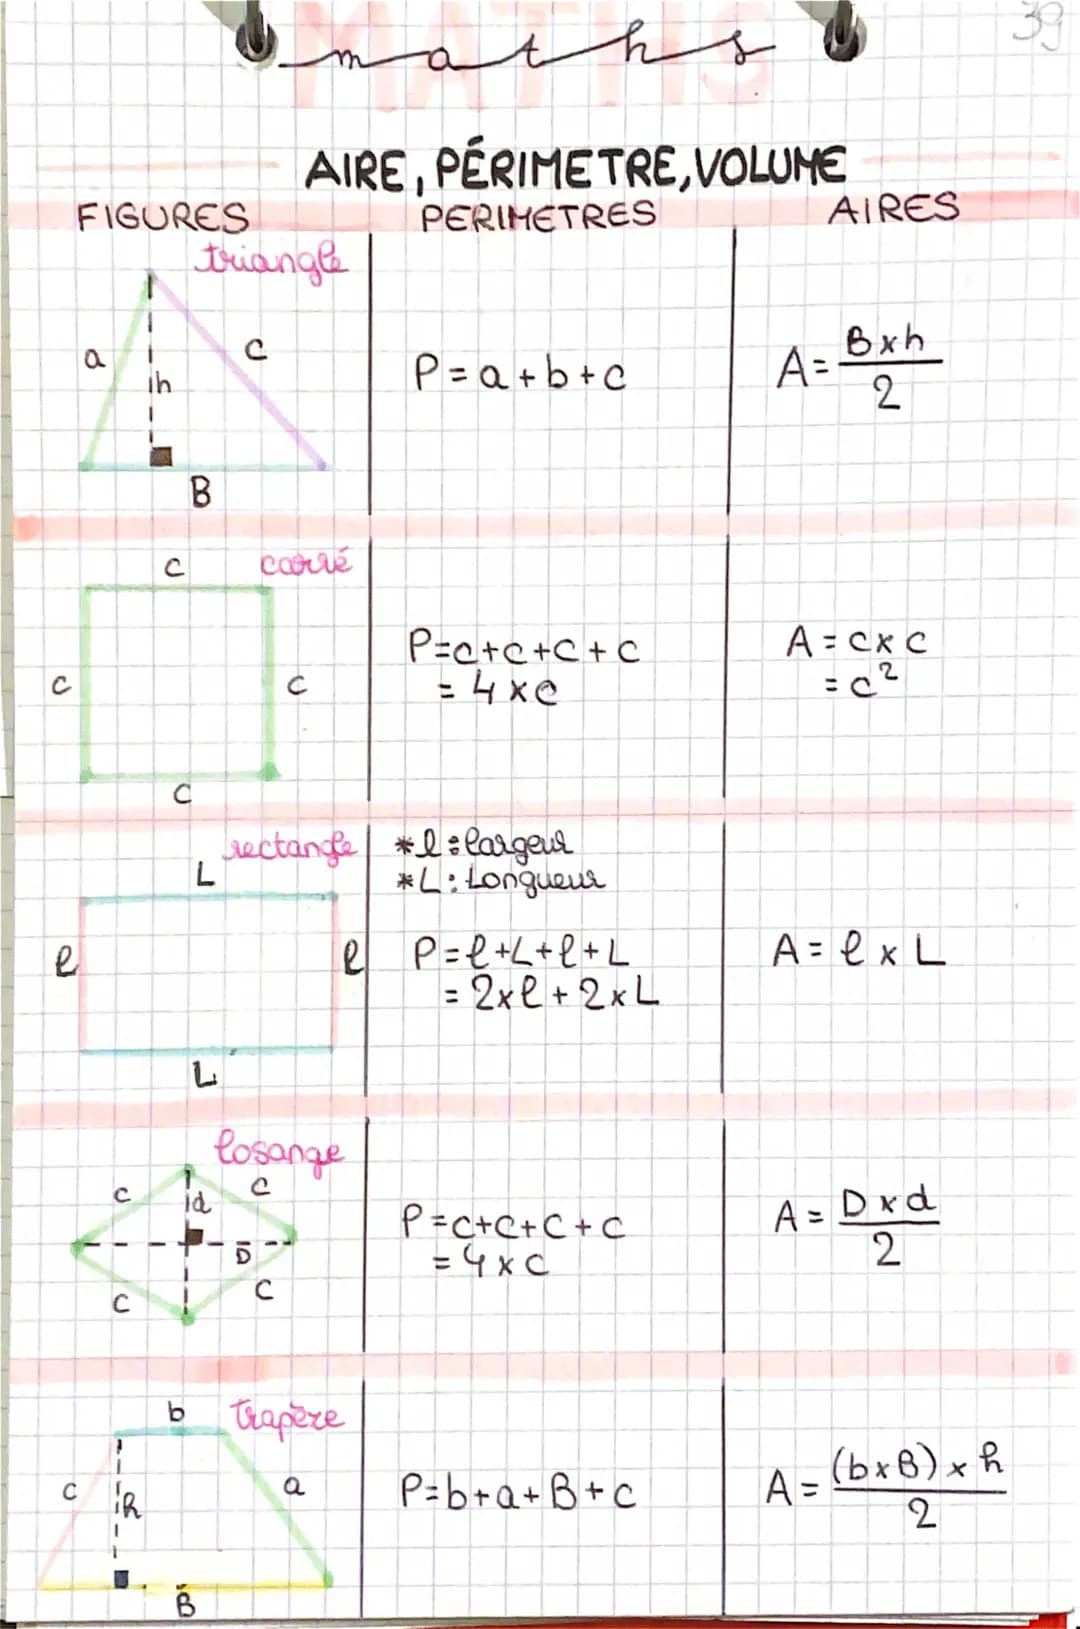 39
MATHS
maths
AIRE, PÉRIMETRE, VOLUME
FIGURES PERIMETRES AIRES
triangle
a c
h
B
P = a + b + c
A = B x h / 2
carré
c
c c
c
P = c + c + c + c
= 4 x c
A = c x c
= c²
rectangle
L
l l
L
* l : largeur
* L : Longueur
P = l + L + l + L
= 2 x l + 2 x L
A = l x L
losange
c d c
D
c c
P = c + c + c + c
= 4 x c
A = D x d / 2
trapèze
b
c h a
B
P = b + a + B + c
A = (b x B) x h / 2